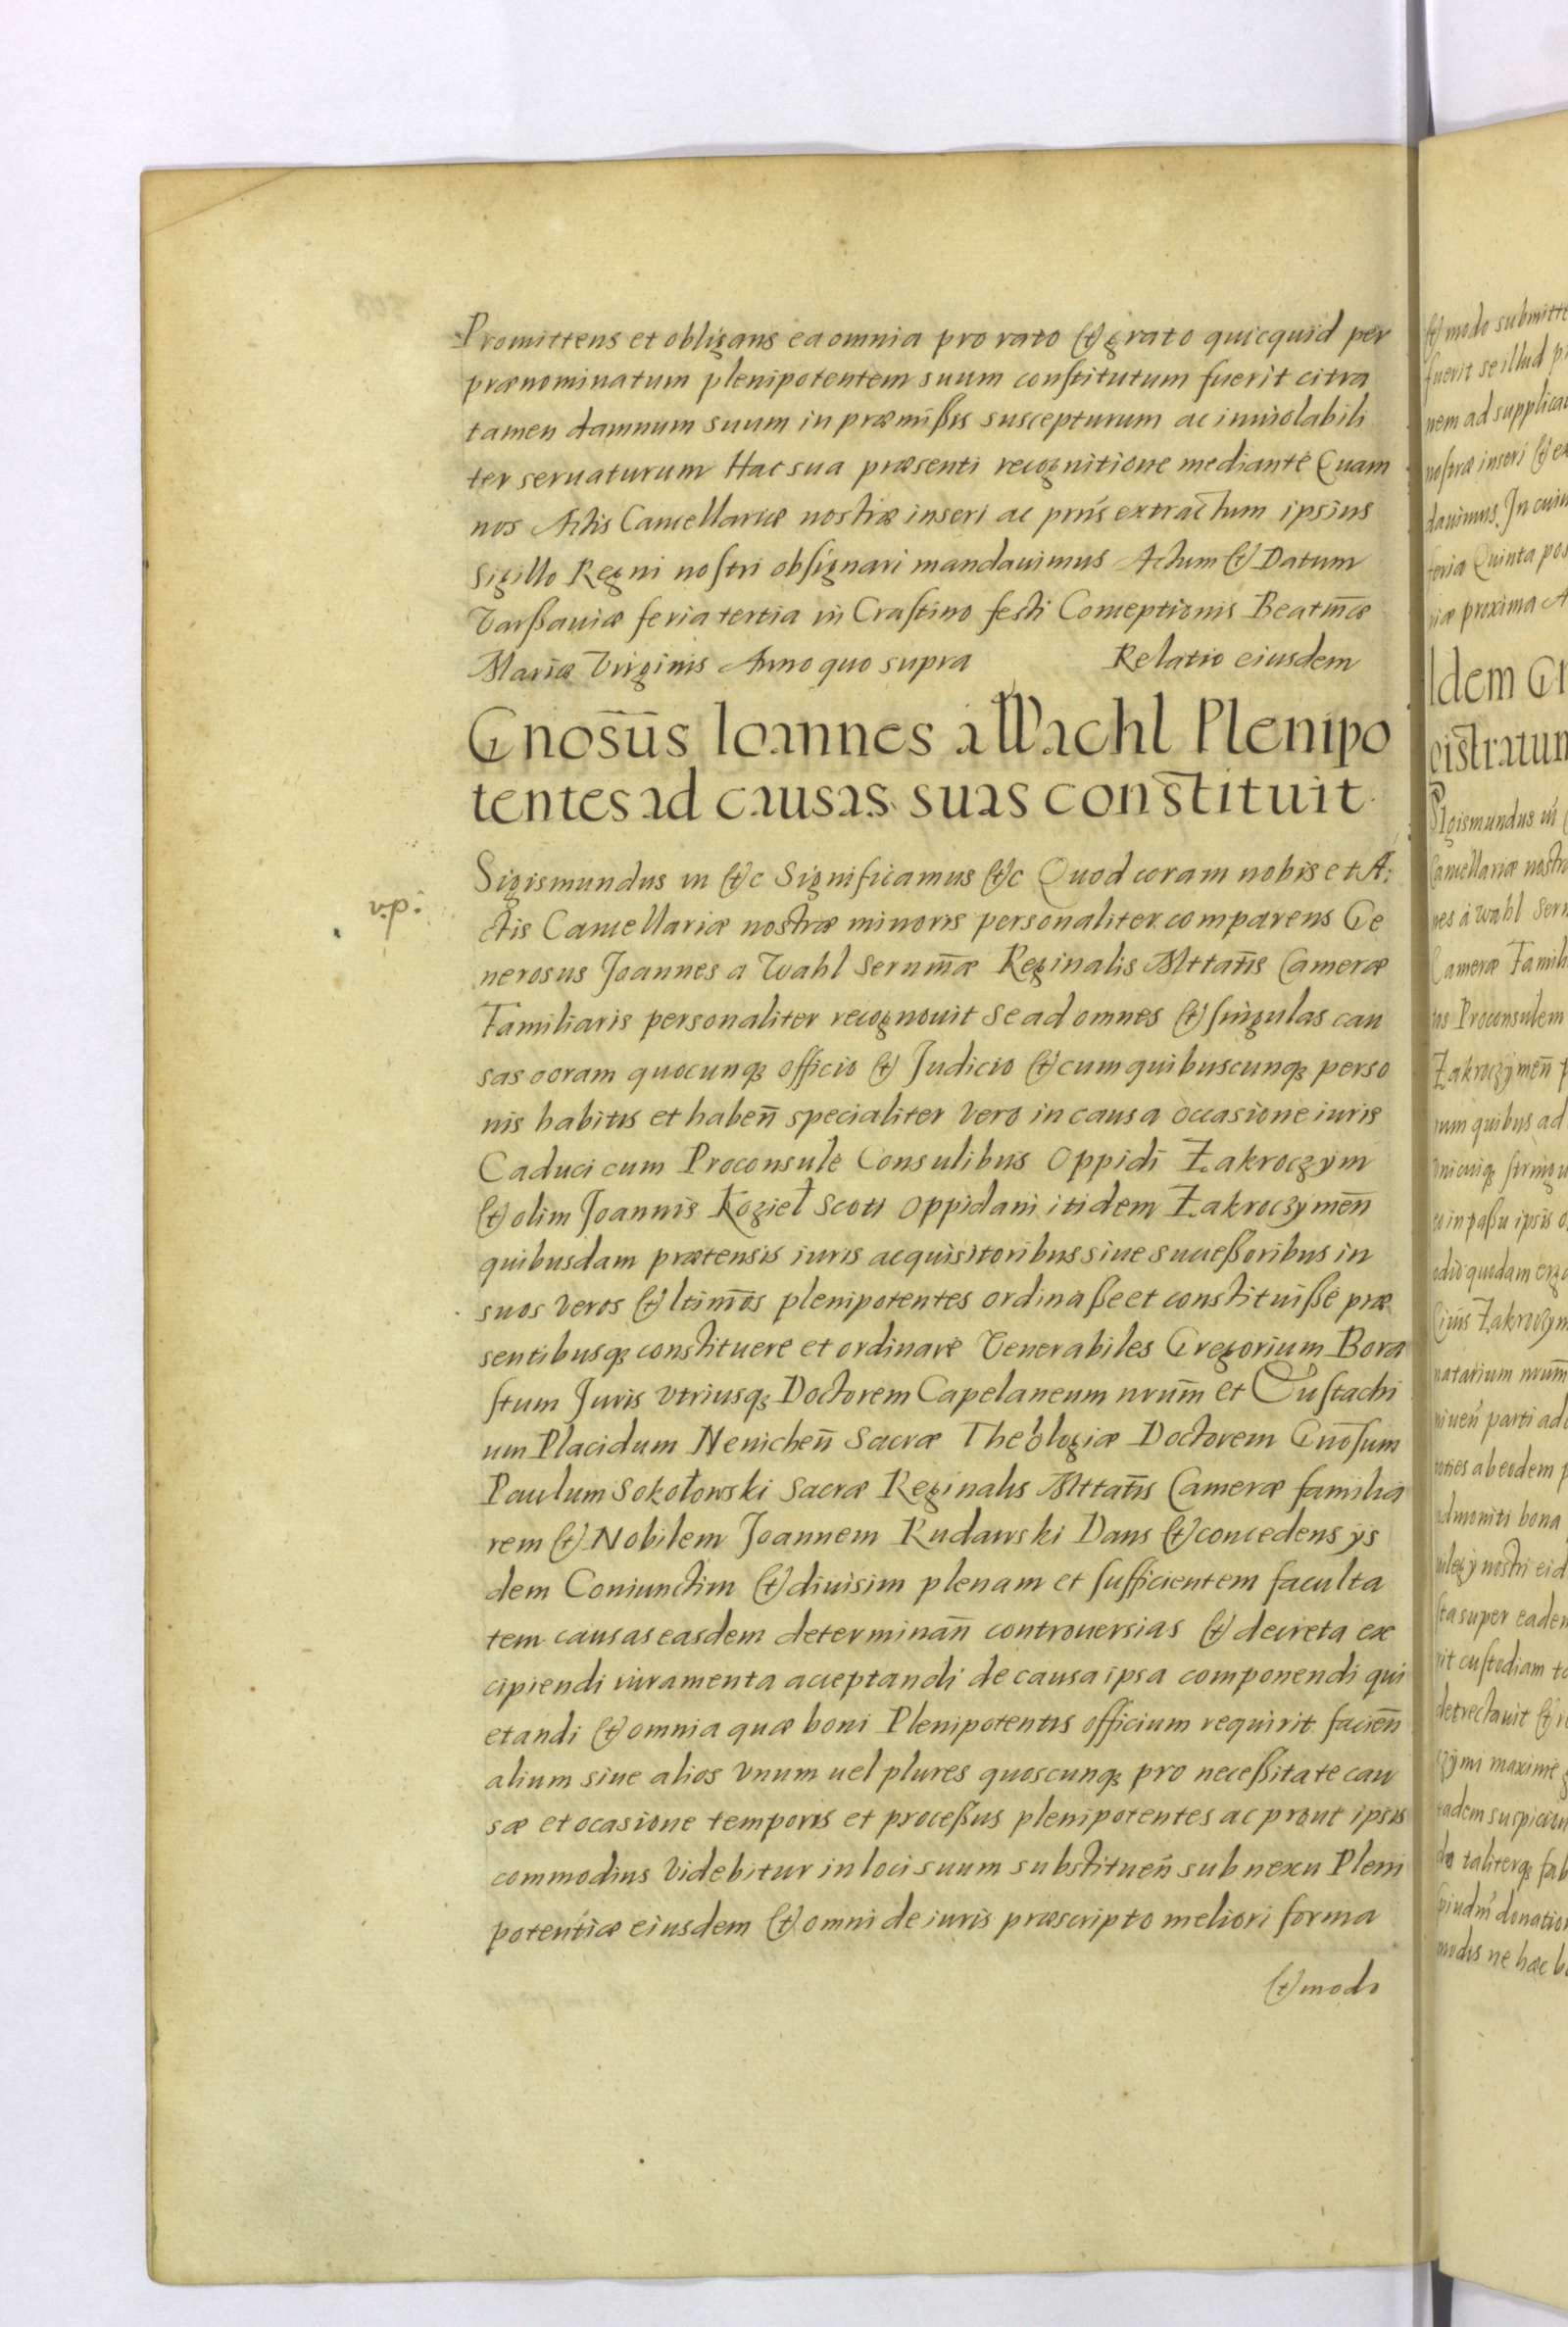 Promittens et obligans ea omnia pro rato & grato quicquid per
prænominatum plenipotentem suum conſtitutum fuerit citra
tamen damnum suum in præmißis suscepturum ac inuiolabili
ter seruaturum Hac sua præsenti recognitione mediante Quam
nos Actis Cancellariæ nostræ inseri ac prńs extractum ipsius
Sigillo Regni noſtri obſignari mandauimus Actum & Datum
Varßauiæ feria tertia in Craſtino feſti Conceptionis Beatm̄æ
Mariæ Virginis Anno quo supra Relatio eiusdem
Gnosūs Ioannes a Wachl Plenipo
tentes ad causas suas constituit
v.p.
Sigismundus in &c Significamus &c Quod coram nobis et A:
ctis Cancellariæ nostræ minoris personaliter comparens Ge
nerosus Joannes a Wahl Serenm̄æ Reginalis Mttatīs Cameræ
Familiaris personaliter recognouit se ad omnes & ſingulas cau
sas coram quocunq; officio & Judicio & cum quibuscunq; perso
nis habitis et habeñ specialiter vero in causa occasione iuris
Caduci cum Proconsule Consulibus Oppidi Zakroczym
& olim Joannis Kozieł Scoti Oppidani itidem Zakroczymen̄
quibusdam prætensis iuris acquisitoribus siue succeßoribus in
suos veros & ltīmos plenipotentes ordinaße et constituißé præ
sentibusq; constituere et ordinare Venerabiles Gregorium Bora
ſtum Juris vtriusq; Doctorem Capelaneum nrum̄ et Euſtachi
um Placidum Nenicheñ Sacræ Theologiæ Doctorem Gnoſum
Paulum Sokołowski Sacræ Reginalis Mttatīs Cameræ familia
rem & Nobilem Joannem Rudawski Dans & concedens ijs
dem Coniunctim & diuisim plenam et ſufficientem faculta
tem causas easdem determinan̄ controuersias & decreta ex
cipiendi iuramenta acceptandi de causa ipsa componendi qui
etandi & omnia quæ boni Plenipotentis officium requirit facien̄
alium siue alios vnum uel plures quoscunq; pro neceßitate cau
sæ et ocasione temporis et proceßus plenipotentes ac prout ipsis
commodius videbitur in loci suum substitueñ sub nexu Pleni
potentiæ eiusdem & omni de iuris præscripto meliori forma
& modo
& modo submitte
fuerit se illud p
nem ad supplica
noſtræ inseri & ex
dauimus. In cuiu
feria Quinta pos
riæ proxima A
Idem G
giſtratum
Sigismundus in
Cancellariæ nostr
nes á Wahl Ser
Cameræ Famili
tos Proconsulem
Zakroczymen̄ p
rum quibus ad